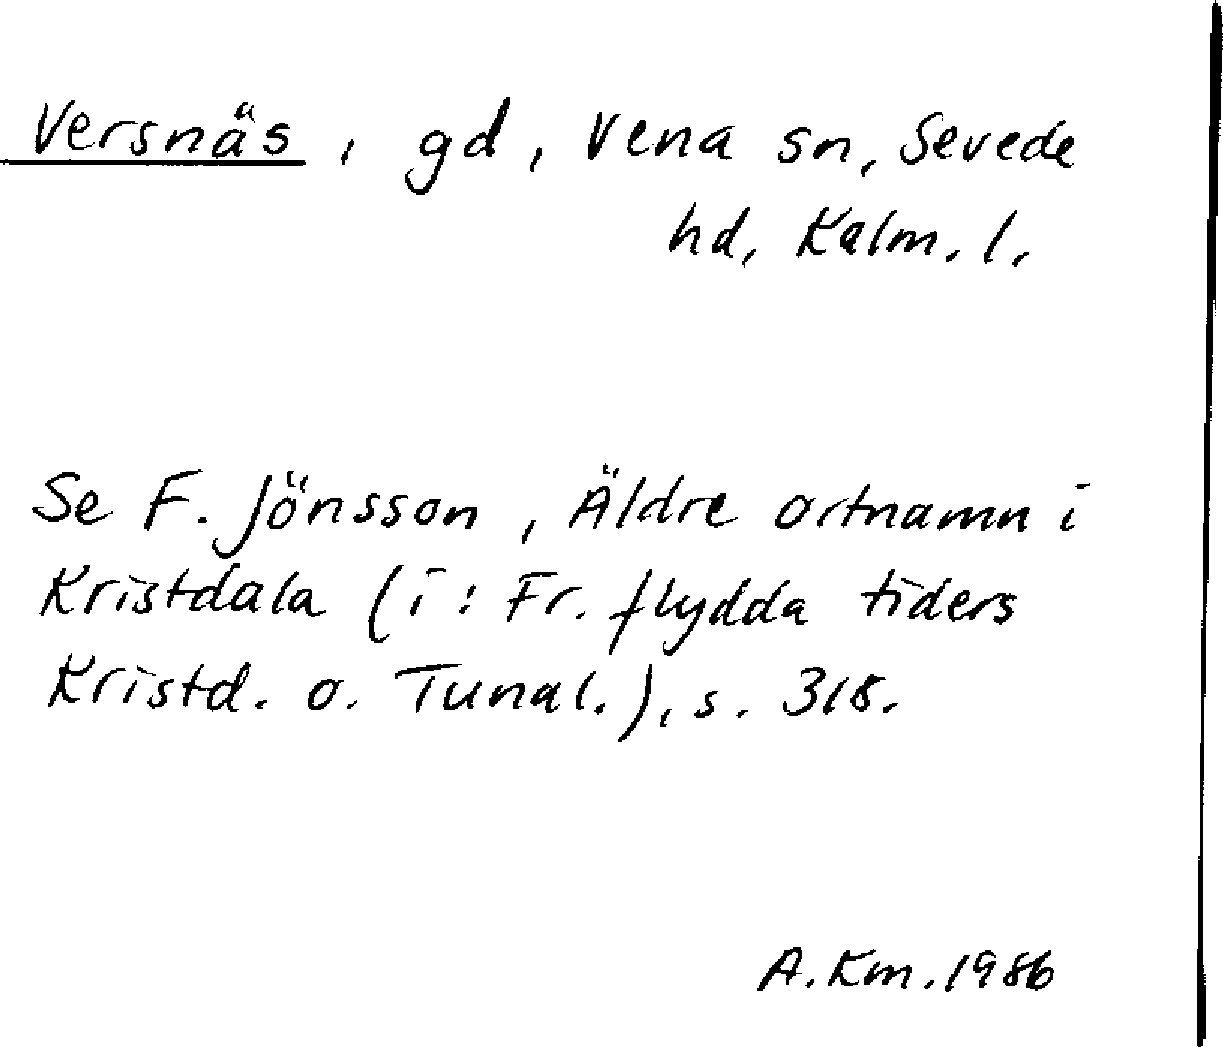 Versnäs, gd, Vena sn, Sevede
hd, Kalm. l.
Se F. Jönsson, Äldre ortnamn i
Kristdala (i: Fr. flydda tiders
Kristd. o. Tunal.), s. 318.
A. Km. 1986